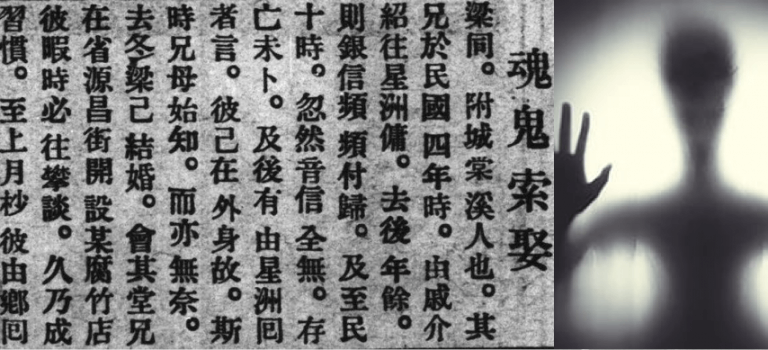 魂鬼索娶
梁同。附城棠溪人也。其
兄於民國四年時。由戚介
紹往星洲傭。去後年餘。
則銀信頻頻付歸。及至民
十時。忽然音信全無。存
亡未卜。及後有由星洲囘
者言。彼己在外身故。斯
時兄母始知。而亦無奈。
去冬梁己結婚。會其堂兄
在省源昌街開設某腐竹店
彼暇時必往攀談。久乃成
習慣。至上月杪彼由鄉囘